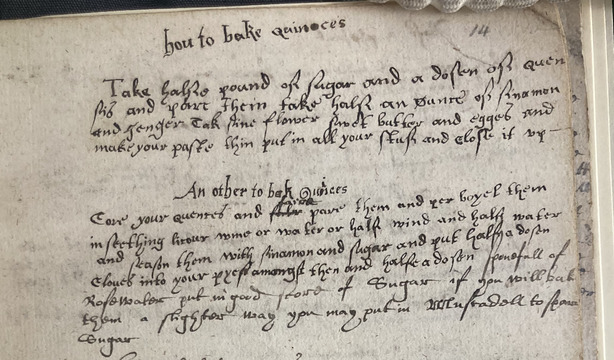 how to bake quinoces
14
Take halfe pound of sugar and a dosen of quen
sis and pare them take half an ounce of sinamon
and genger Tak fine flower swet butter and egges and
make your paste thin put in all your stuf and close it vp
An other to bak Quinces
Core your quences and faire pare them and per boyel them
in seething licour wine or water or half wind and half water
and season them with sinamon and sugar and put halfe a dosen
Cloues into your pyes amongst then and halfe a dosen sponefull of
Rosewater put in good store of Sugar if you will bak
them a slighter way you may put in Muscadell to spare
Sugar